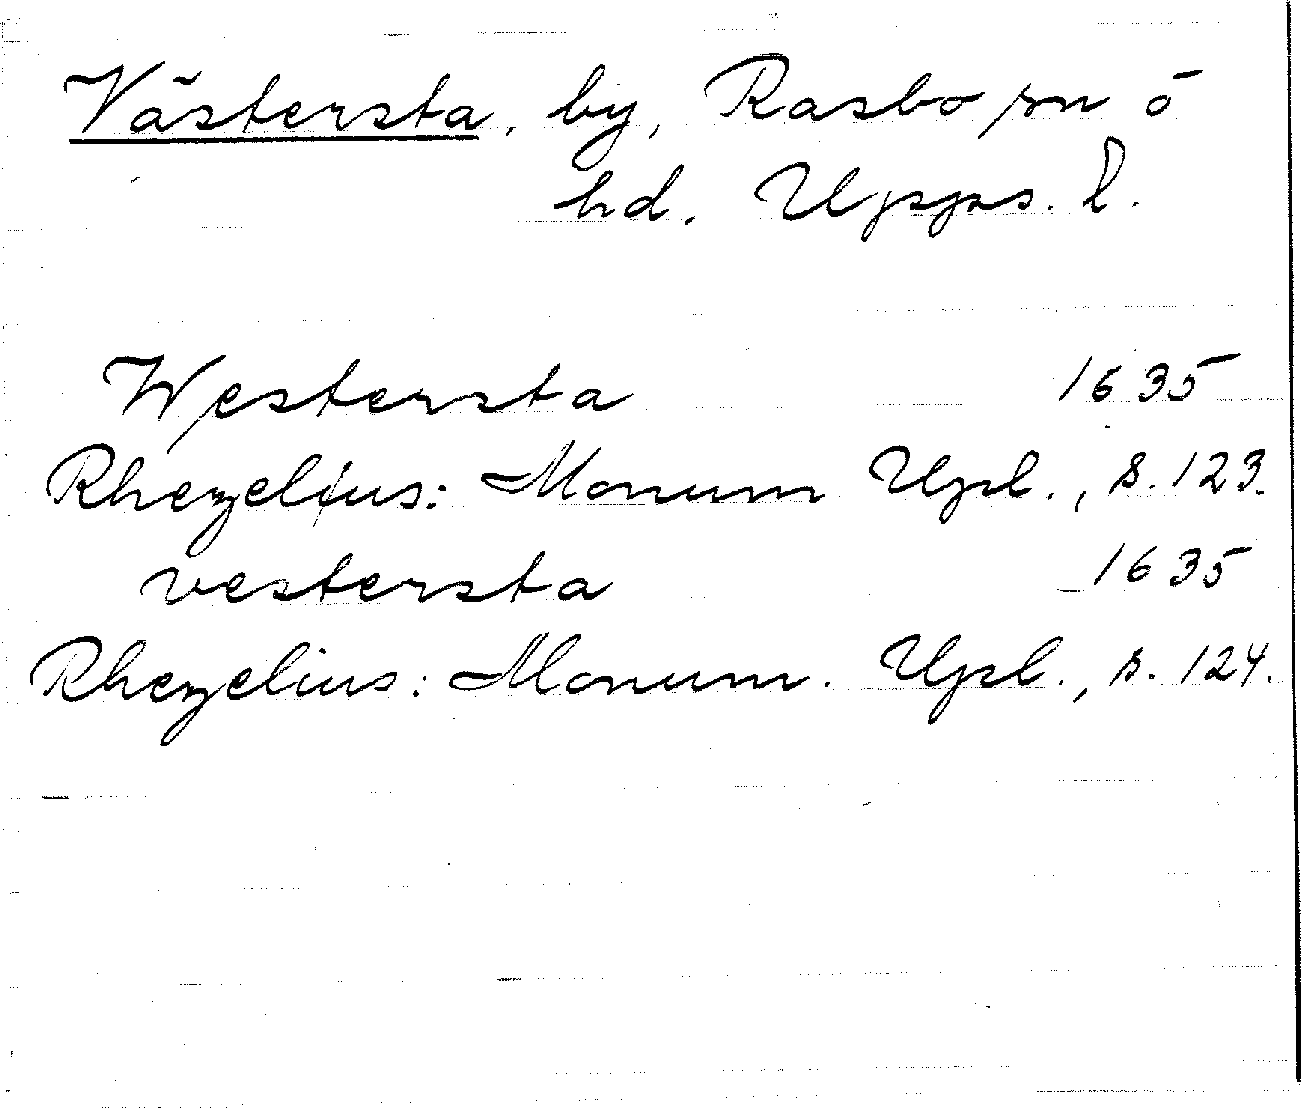 Västersta, by, Rasbo sn ö
hd. Upps. l.
Westersta 1635
Rhezelius: Monum Upl., s. 123.
vestersta 1635
Rhezelius: Monum. Upl., s. 124.